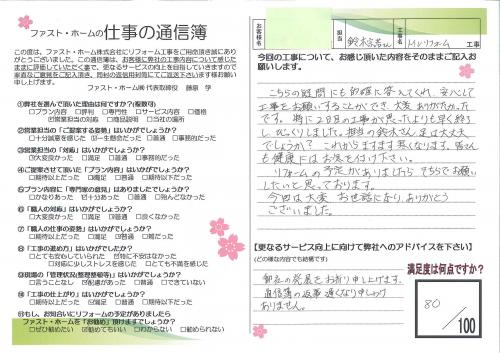 ファスト・ホームの仕事の通信簿
この度は、ファスト・ホーム株式会社にリフォーム工事をご用命頂き誠にあり
がとうございました。この通信簿は、お客様に弊社の工事内容について感じた
ままに評価していただく事で、更なるサービスの向上を目指していきますので
率直なご意見をご記入頂き、同封の返信用封筒にてご返送下さいます様お願い
申し上げます。
ファスト・ホーム㈱ 代表取締役 藤原 学
①弊社を選んで頂いた理由は何ですか?(複数可)
□プラン内容 □評判 □専門性 □サービス内容 □価格
☑営業担当の対応 □商品説明 □当社の場所
②営業担当の「ご提案する姿勢」はいかがでしょうか?
□十分誠意を感じた ☑一生懸命だった □普通 □事務的だった
③営業担当の「対応」はいかがでしょうか?
☑大変良かった □満足 □普通 □事務的だった
④ご提案させて頂いた「プラン内容」はいかがでしょうか?
□期待以上だった ☑満足 □普通 □期待以下だった
⑤プラン内容に「専門家の意見」はありましたでしょうか?
□かなりあった ☑十分あった □普通 □あまりなかった
⑥「職人の対応」はいかがでしょうか?
□大変良かった □満足 ☑普通 □良くなかった
⑦「職人の仕事の姿勢」はいかがでしょうか?
□期待以上だった □満足 ☑普通 □雑だった
⑧「工事の進め方」はいかがでしたか?
□とても安心していられた ☑特に不安はなかった
□対応に少しストレスを感じた □とても不満を感じた
⑨現場の「管理状況(整理整頓等)」はいかがでしょうか?
□言うことなし ☑配慮があった □普通 □できていない
⑩「工事の仕上がり」はいかがでしょうか?
□期待以上だった ☑満足 □普通 □期待以下だった
⑪もし、お知合いにリフォームの予定がありましたら
ファスト・ホームを「お勧め」頂けますでしょうか?
□ぜひ勧めたい ☑勧めてもいい □わからない □勧められない
お客様名
担当
鈴木
工事名
リフォーム 工事
今回の工事について、お感じ頂いた内容をそのままご記入お
願いします。
こちらの疑問にも的確に答えてくれ、安心して
工事をお願いすることができ、大変ありがたかった
です。特に2日の工事が思ったよりも早く終了
し、びっくりしました。担当の鈴木さん、足は大丈夫
でしょうか? これからますます寒くなります。皆さん
も健康にはお気を付け下さい。
リフォームの予定がありましたら そちらでお願い
したいと思っております。
今回は大変お世話になり、ありがとう
ございました。
【更なるサービス向上に向けて弊社へのアドバイスを下さい】
(どの様な内容でも結構です)
御社の発展をお祈り申し上げます。
通信簿の返事 遅くなり申しわけ
ありません。
満足度は何点ですか?
80
/100